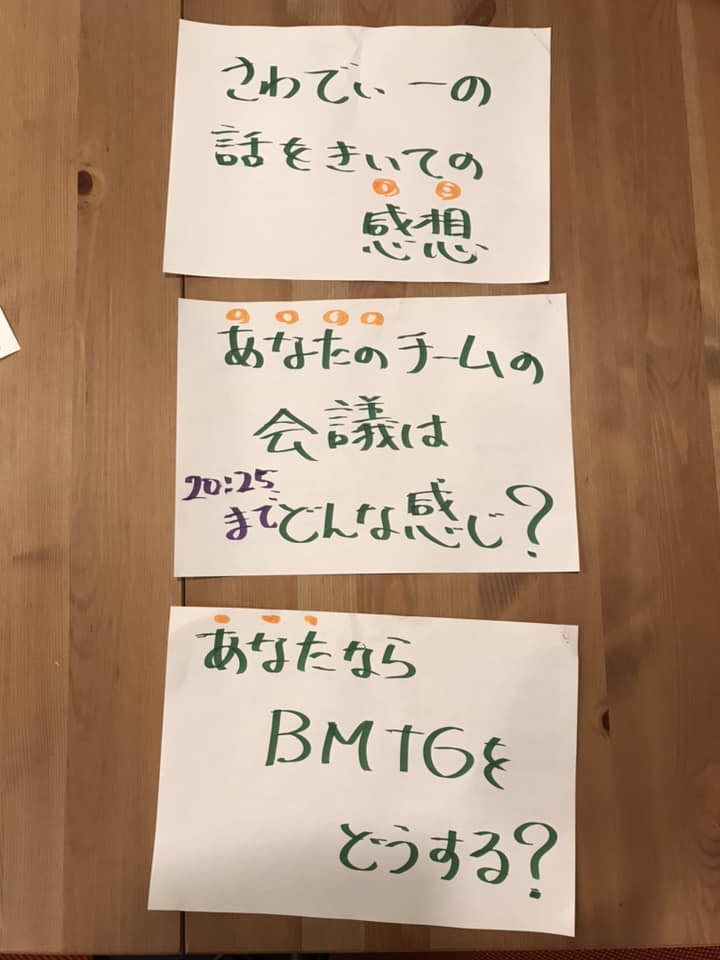 さわでぃーの
話をきいての
感想
あなたのチームの
会議は
20:25
まで
どんな感じ?
あなたなら
BMTGを
どうする?